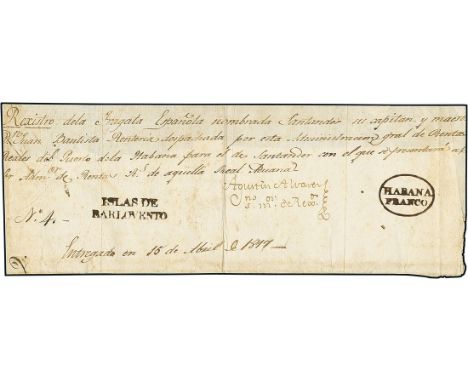 Rexistro dela Fragata Española nombrada Santander su capitan, y maestre
Dn. Juan Bautista Renteria despachada por esta Administracion gral de Rentas
Reales del Puerto dela Habana para el de Santander con el que se presentará a
Admor. de Rentas de aquella Real Aduana
Agustin Alvarez
ISLAS DE
BARLOVENTO
HABANA
FRANCO
No. 4.
Entregado en 15 de Abril de 1817